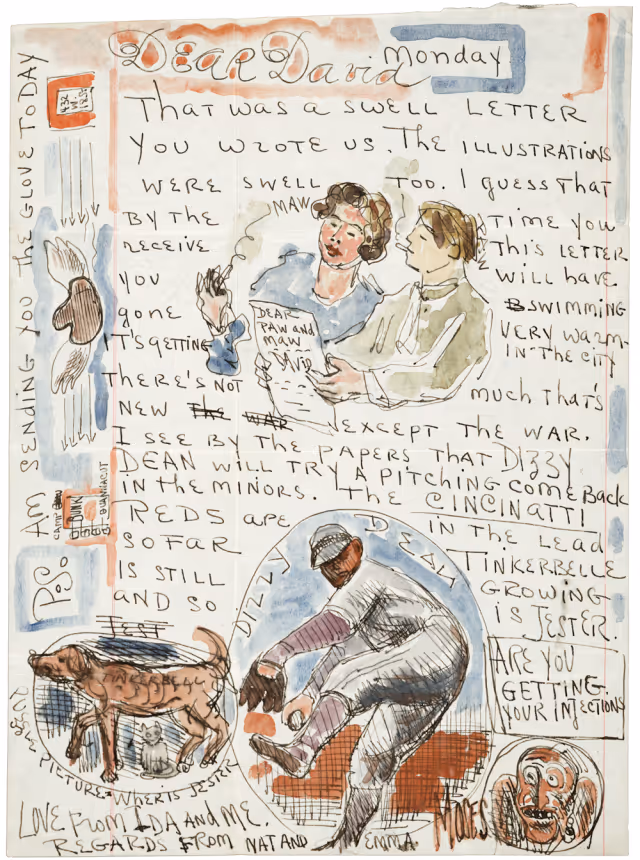 DEAR David
Monday
THAT WAS A SWELL LETTER
YOU WROTE US. THE ILLUSTRATIONS
WERE SWELL TOO. I guess THAT
MAW
BY THE TIME YOU
RECEIVE THIS LETTER
YOU WILL have
gone SWIMMING
T'S GETTING VERY WARM
IN THE CITY
DEAR
PAW AND
MAW
THERE'S NOT much THAT'S
NEW THE WAR EXCEPT THE WAR.
I SEE BY THE PAPERS THAT DIZZY
DEAN WILL TRY A PITCHING COME BACK
IN THE MINORS. THE CINCINATTI
REDS ARE IN THE LEAD
SO FAR TINKERBELLE
IS STILL GROWING
AND SO IS JESTER.
DIZZY DEAN
ARE YOU
GETTING
YOUR INJECTIONS
JEST
TINKERBELL
PICTURE = WHERE IS JESTER
MOSES
LOVE FROM IDA AND ME.
REGARDS FROM NAT AND EMMA
P.S.
AM SENDING YOU THE GLOVE TODAY